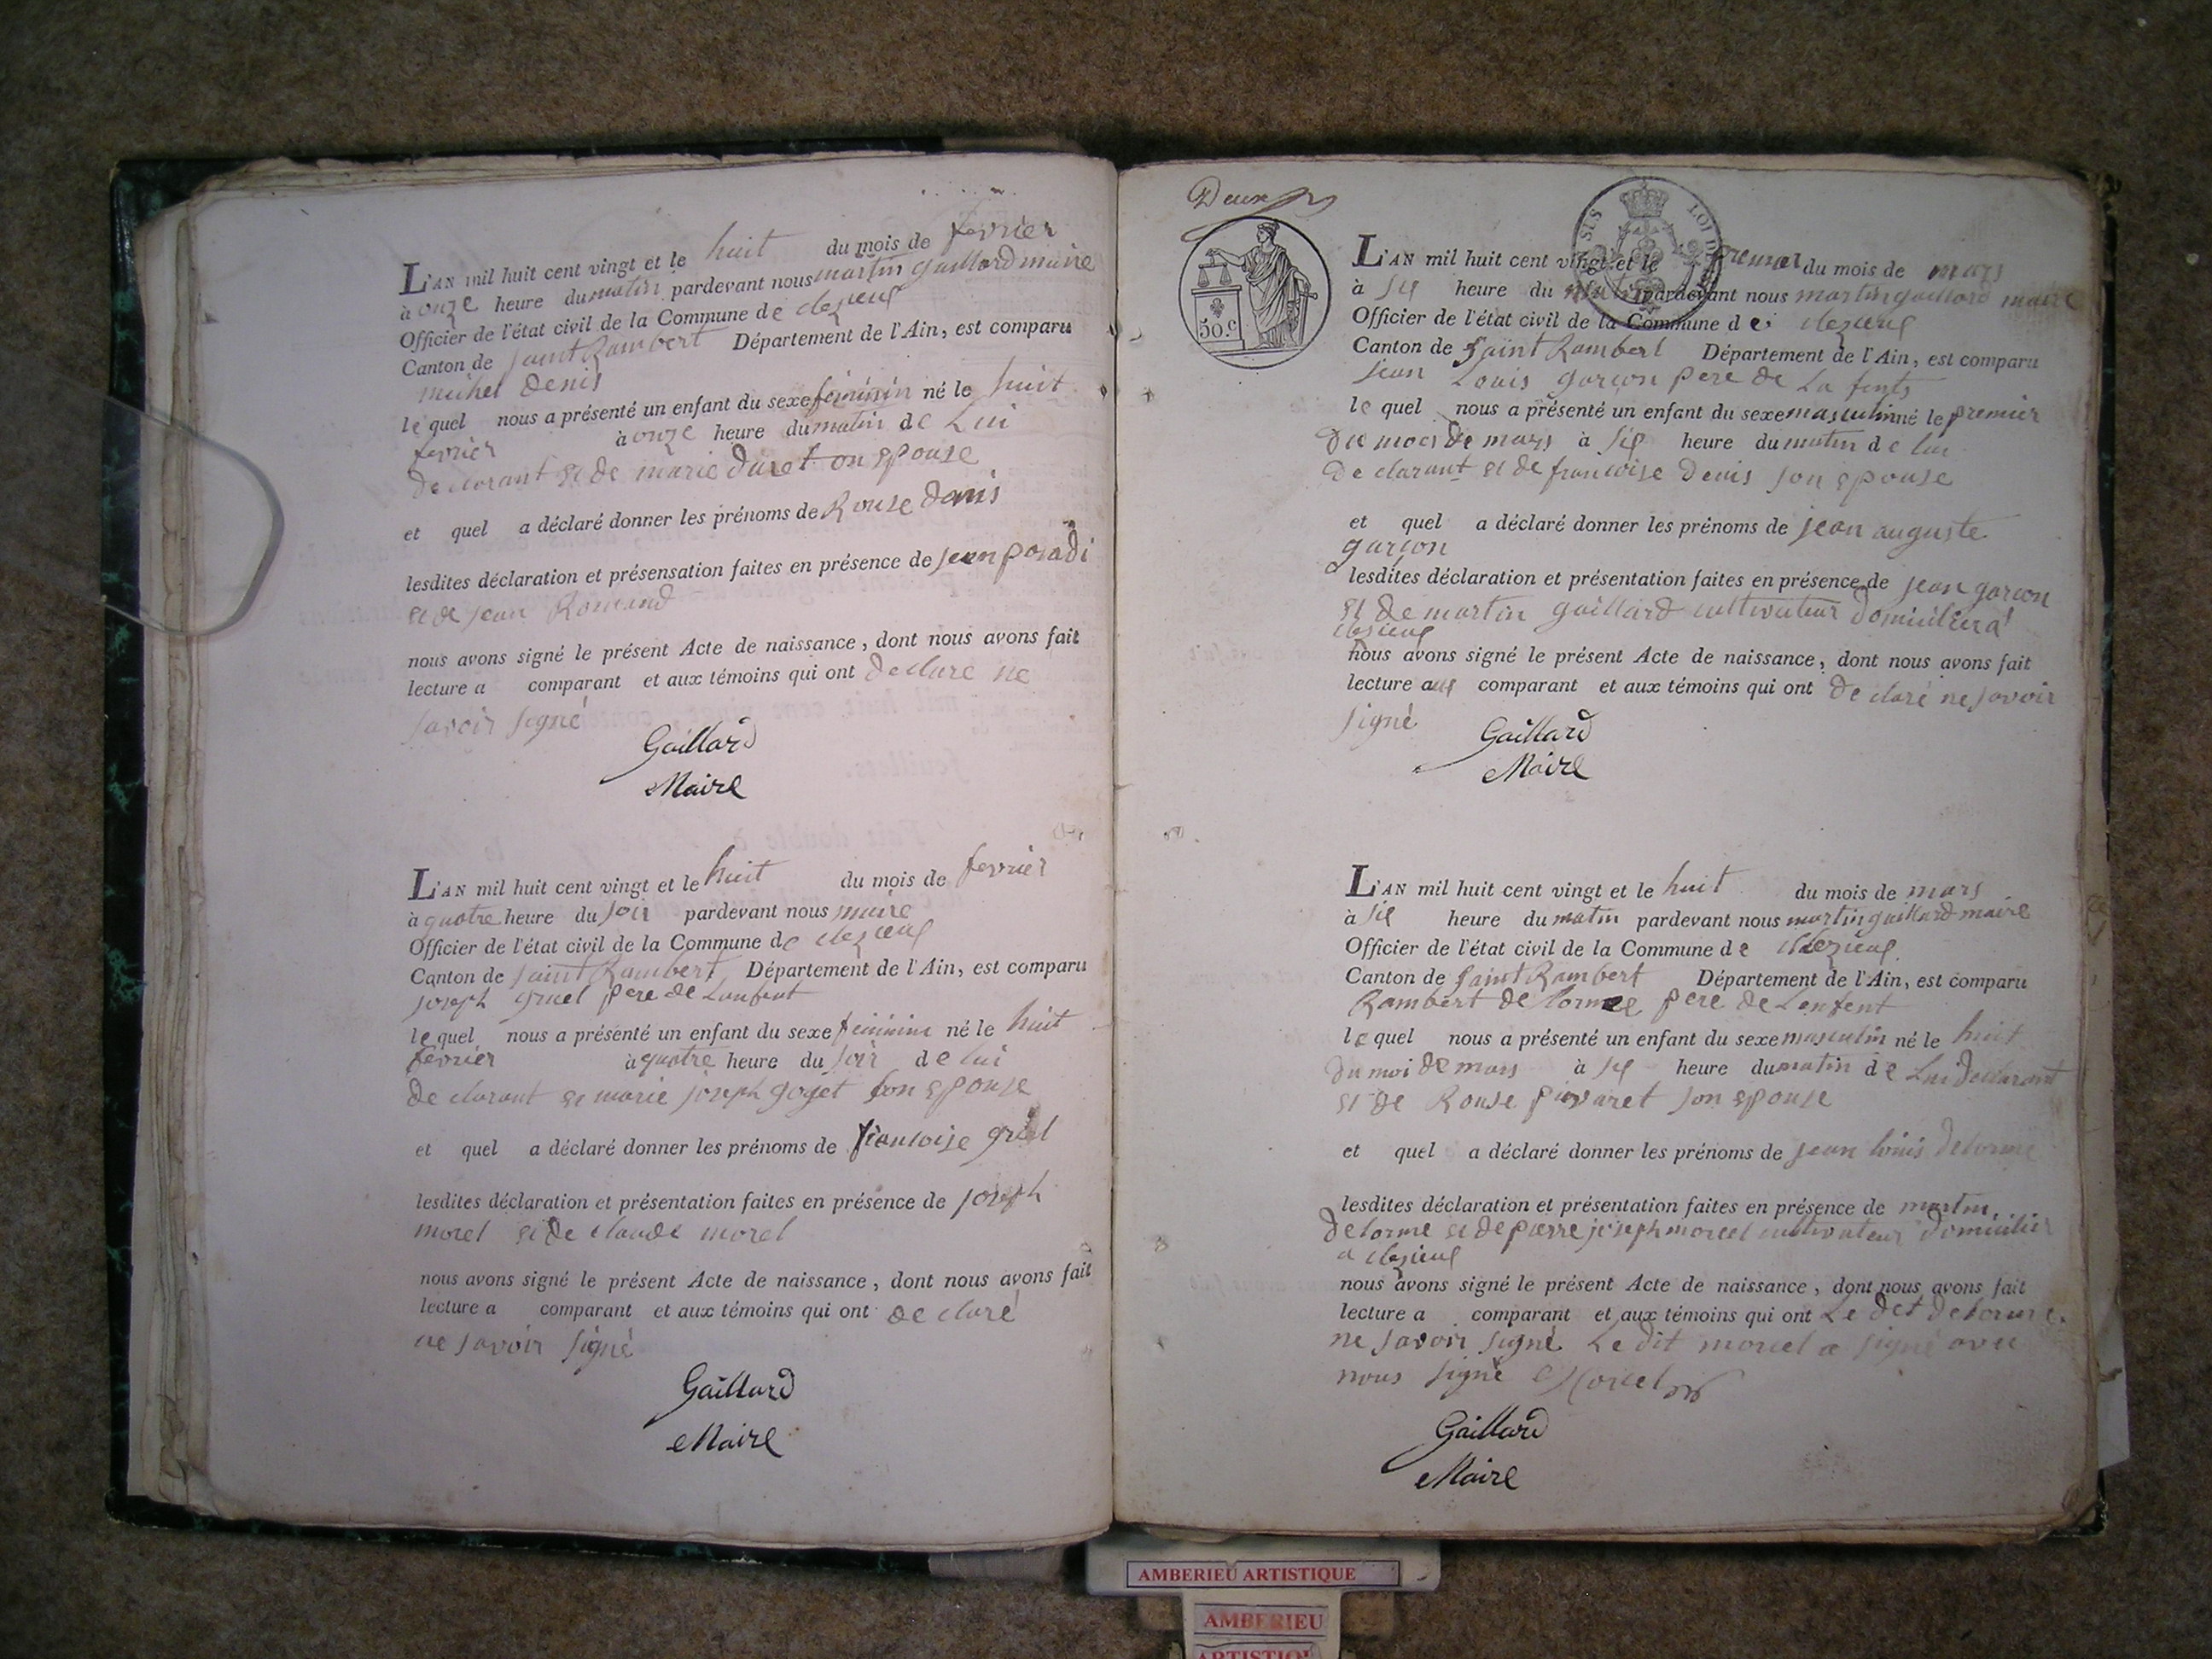 L'AN mil huit cent vingt et le huit du mois de fevrier
à onze heure du matin pardevant nous martin gaillard maire
Officier de l'état civil de la Commune de clezieux
Canton de saint Rambert Département de l'Ain, est comparu
michel denis
lequel nous a présenté un enfant du sexe feminin né le huit
fevrier à onze heure du matin de Lui
declarant et de marie on epouse
et quel a déclaré donner les prénoms de Rouse denis
lesdites déclaration et présensation faites en présence de jean
et de jean Romand
nous avons signé le présent Acte de naissance, dont nous avons fait
lecture a comparant et aux témoins qui ont declare ne
savoir signé
Gaillard
Maire
L'AN mil huit cent vingt et le huit du mois de fevrier
à quatre heure du soir pardevant nous maire
Officier de l'état civil de la Commune de clezieux
Canton de saint Rambert Département de l'Ain, est comparu
joseph gruel pere de Lenfent
lequel nous a présenté un enfant du sexe feminin né le huit
fevrier à quatre heure du soir de lui
declarant et marie joseph goget son epouse
et quel a déclaré donner les prénoms de francoise
lesdites déclaration et présentation faites en présence de joseph
morel et de claude morel
nous avons signé le présent Acte de naissance, dont nous avons fait
lecture a comparant et aux témoins qui ont declaré
ne savoir signé
Gaillard
Maire
Deux
50.c
SIS LOI D
L'AN mil huit cent vingt et le premier du mois de mars
à six heure du matin pardevant nous martin gaillard maire
Officier de l'état civil de la Commune de clezieux
Canton de Saint Rambert Département de l'Ain, est comparu
jean Louis garçon pere de La
lequel nous a présenté un enfant du sexe masculin né le premier
du mois de mars à six heure du matin de lui
declarant et de francoise Denis son epouse
et quel a déclaré donner les prénoms de jean auguste
garçon
lesdites déclaration et présentation faites en présence de jean garcon
et de martin gaillard cultivateur domicilier a
clezieux
nous avons signé le présent Acte de naissance, dont nous avons fait
lecture aux comparant et aux témoins qui ont declaré ne savoir
signé
Gaillard
Maire
L'AN mil huit cent vingt et le huit du mois de mars
à six heure du matin pardevant nous martin gaillard maire
Officier de l'état civil de la Commune de clezieux
Canton de saint Rambert Département de l'Ain, est comparu
Rambert de pere de Lenfent
lequel nous a présenté un enfant du sexe masculin né le huit
du moi de mars à six heure du matin de Lui declarant
et de Rouse son epouse
et quel a déclaré donner les prénoms de jean louis delorme
lesdites déclaration et présentation faites en présence de martin
delorme et de pierre joseph morcel cultivateur domicilier
a clezieux
nous avons signé le présent Acte de naissance, dont nous avons fait
lecture a comparant et aux témoins qui ont Le det delorme
ne savoir signé Le dit morcel a signé avec
nous signé Morcel
Gaillard
Maire
AMBERIEU ARTISTIQUE
AMBERIEU
ARTISTIQUE